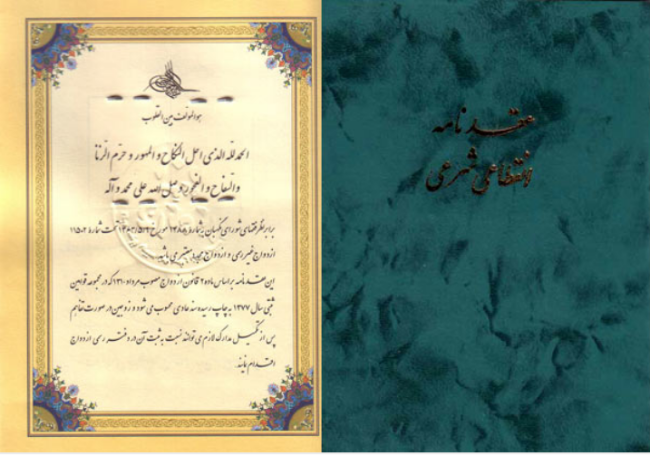 هوالمؤلف بین القلوب
الحمدلله الذی احل النکاح و المهور و حرم الزنا
و السفاح و الفجور و صلی الله علی محمد و آله
برابر نظر فقهای شورای نگهبان به شماره مورخ تحت شماره
ازدواج غیررسمی و ازدواج مجدد معتبر می باشد
این عقدنامه براساس ماده ۲ قانون ازدواج مصوب مرداد ۱۳۱۰ که در مجموعه قوانین
ثبتی سال ۱۳۷۷ به چاپ رسیده سند عادی محسوب می شود و زوجین در صورت تفاهم
پس از تکمیل مدارک لازم می توانند نسبت به ثبت آن در دفتر رسمی ازدواج
اقدام نمایند
عقدنامه
انقطاعی شرعی